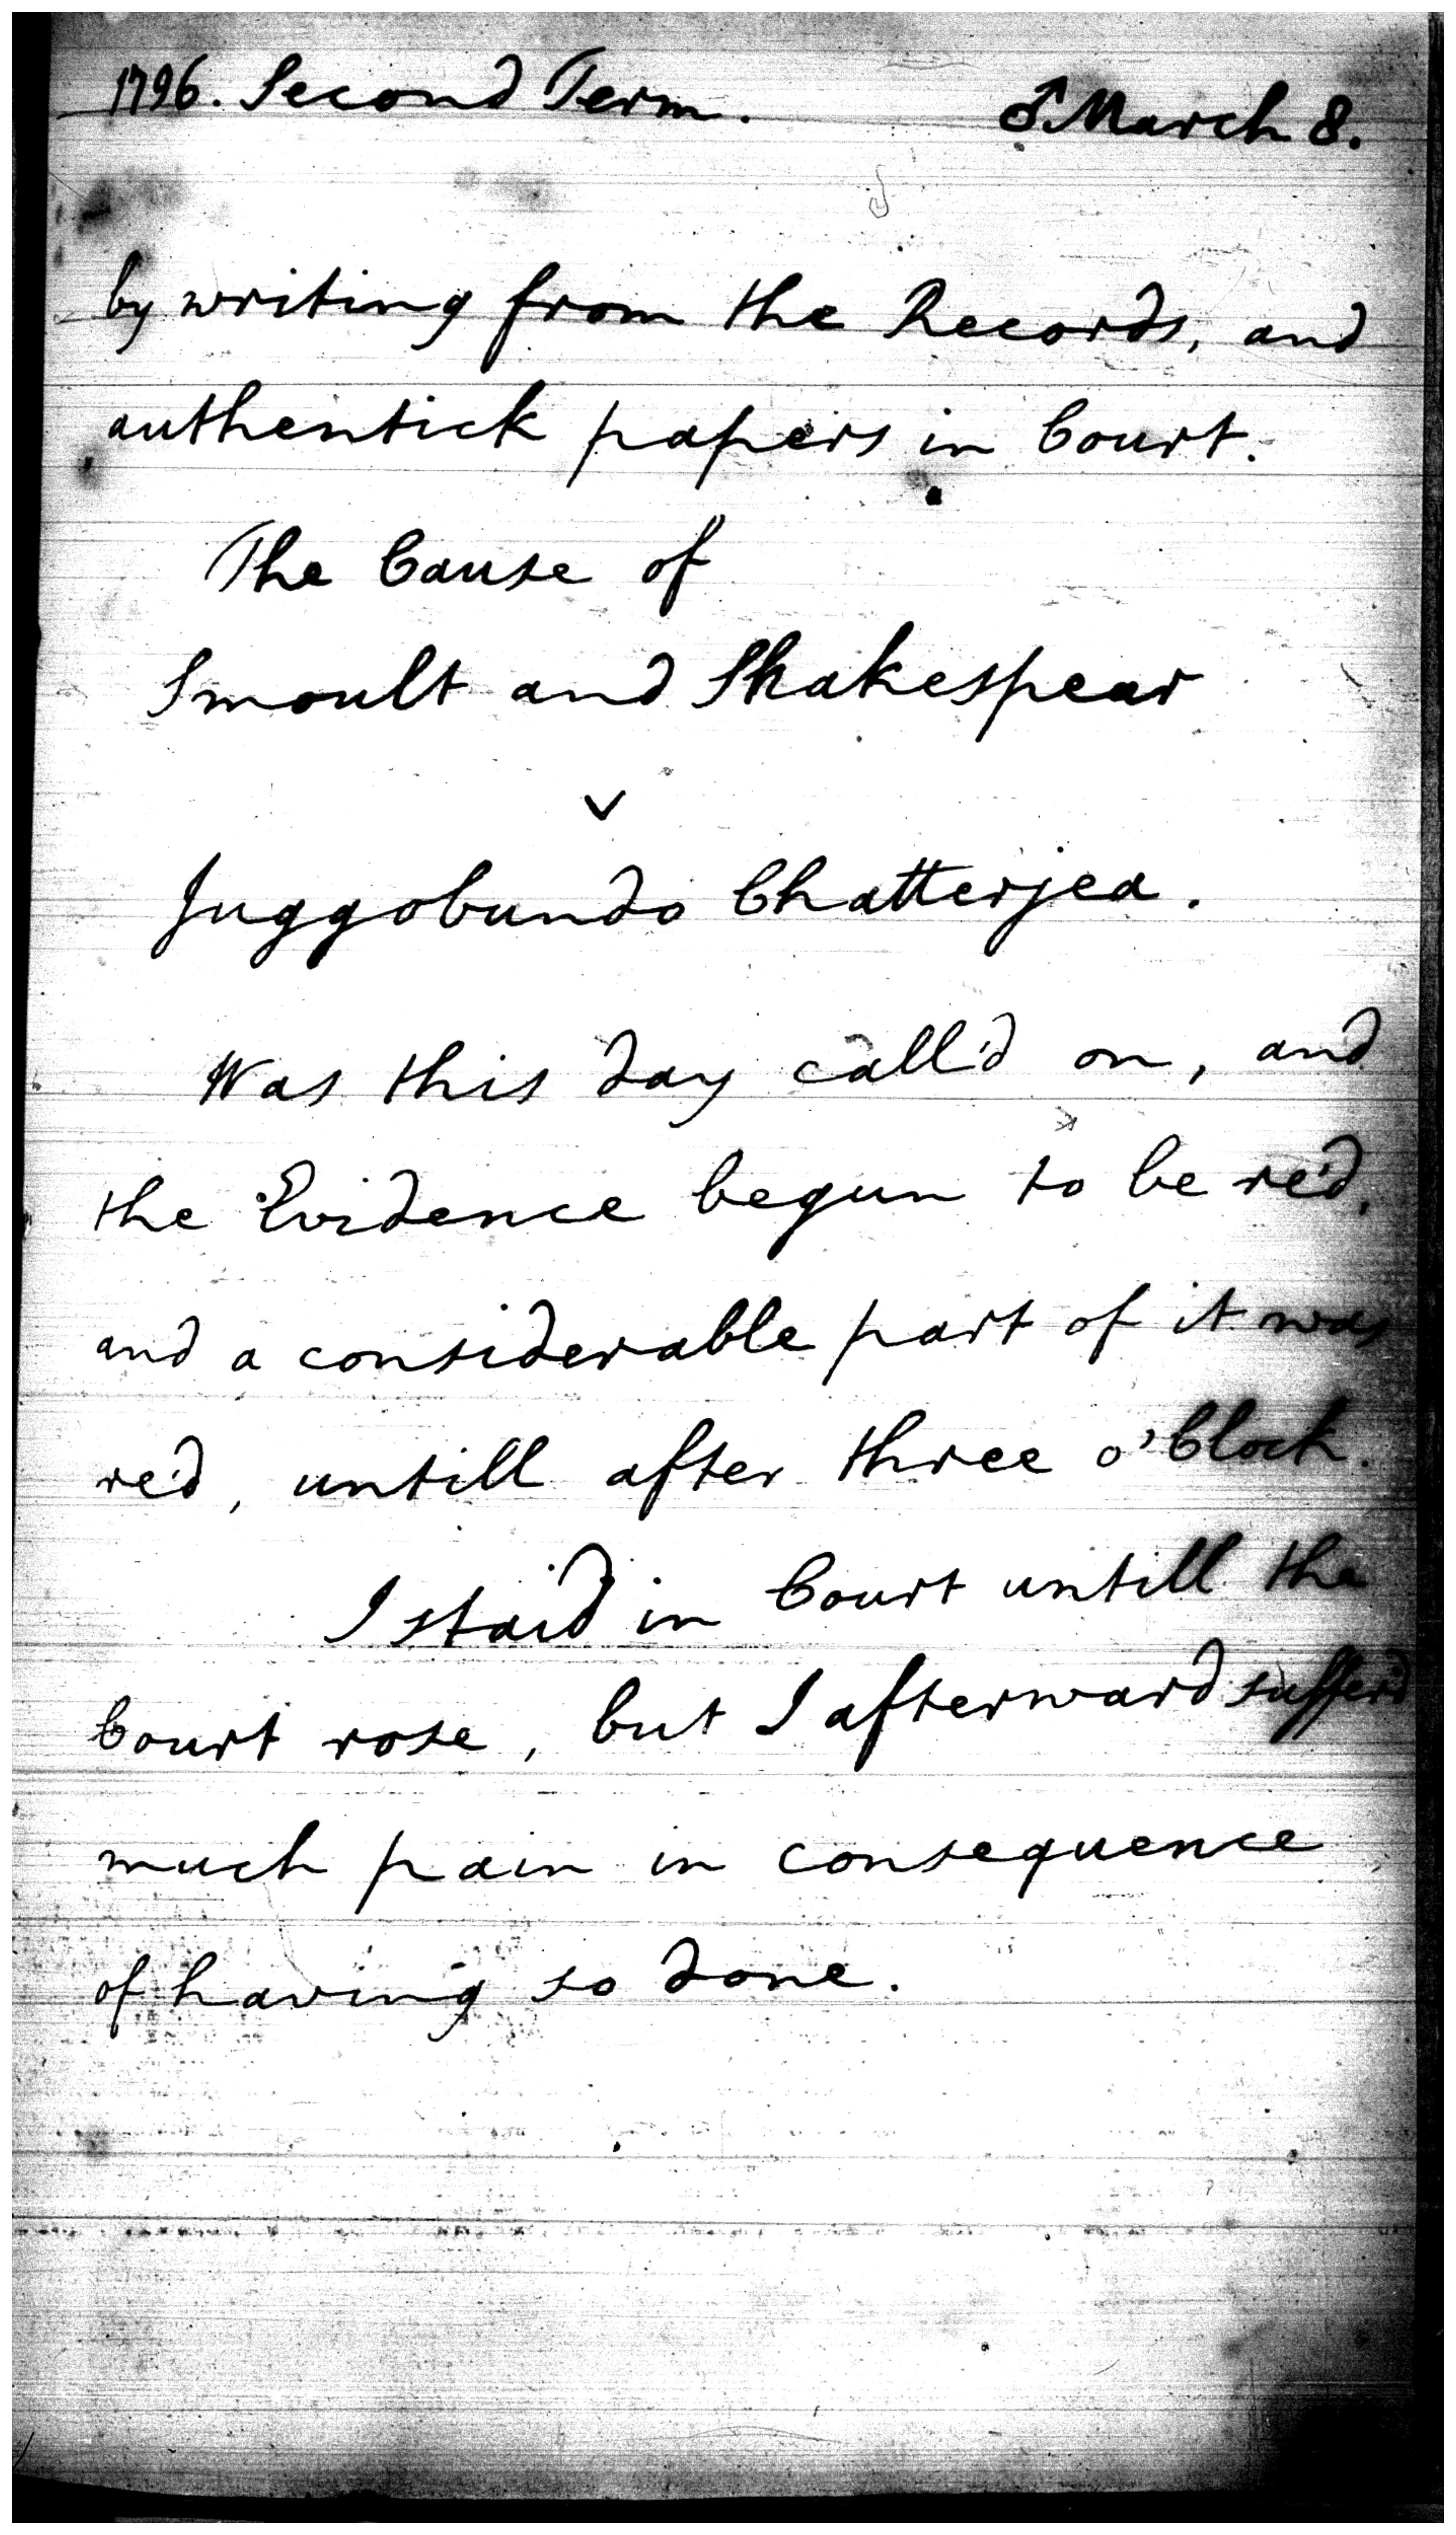 1796. Second Term. ♂ March 8.
by writing from the Records, and
authentick papers in Court.
The Cause of
Smoult and Shakespear
v
Juggobundo Chatterjea.
Was this day call'd on, and
the Evidence begun to be re'd,
and a considerable part of it was
re'd, untill after three o'Clock.
I staid in Court untill the
Court rose, but I afterward suffer'd
much pain in consequence
of having so done.